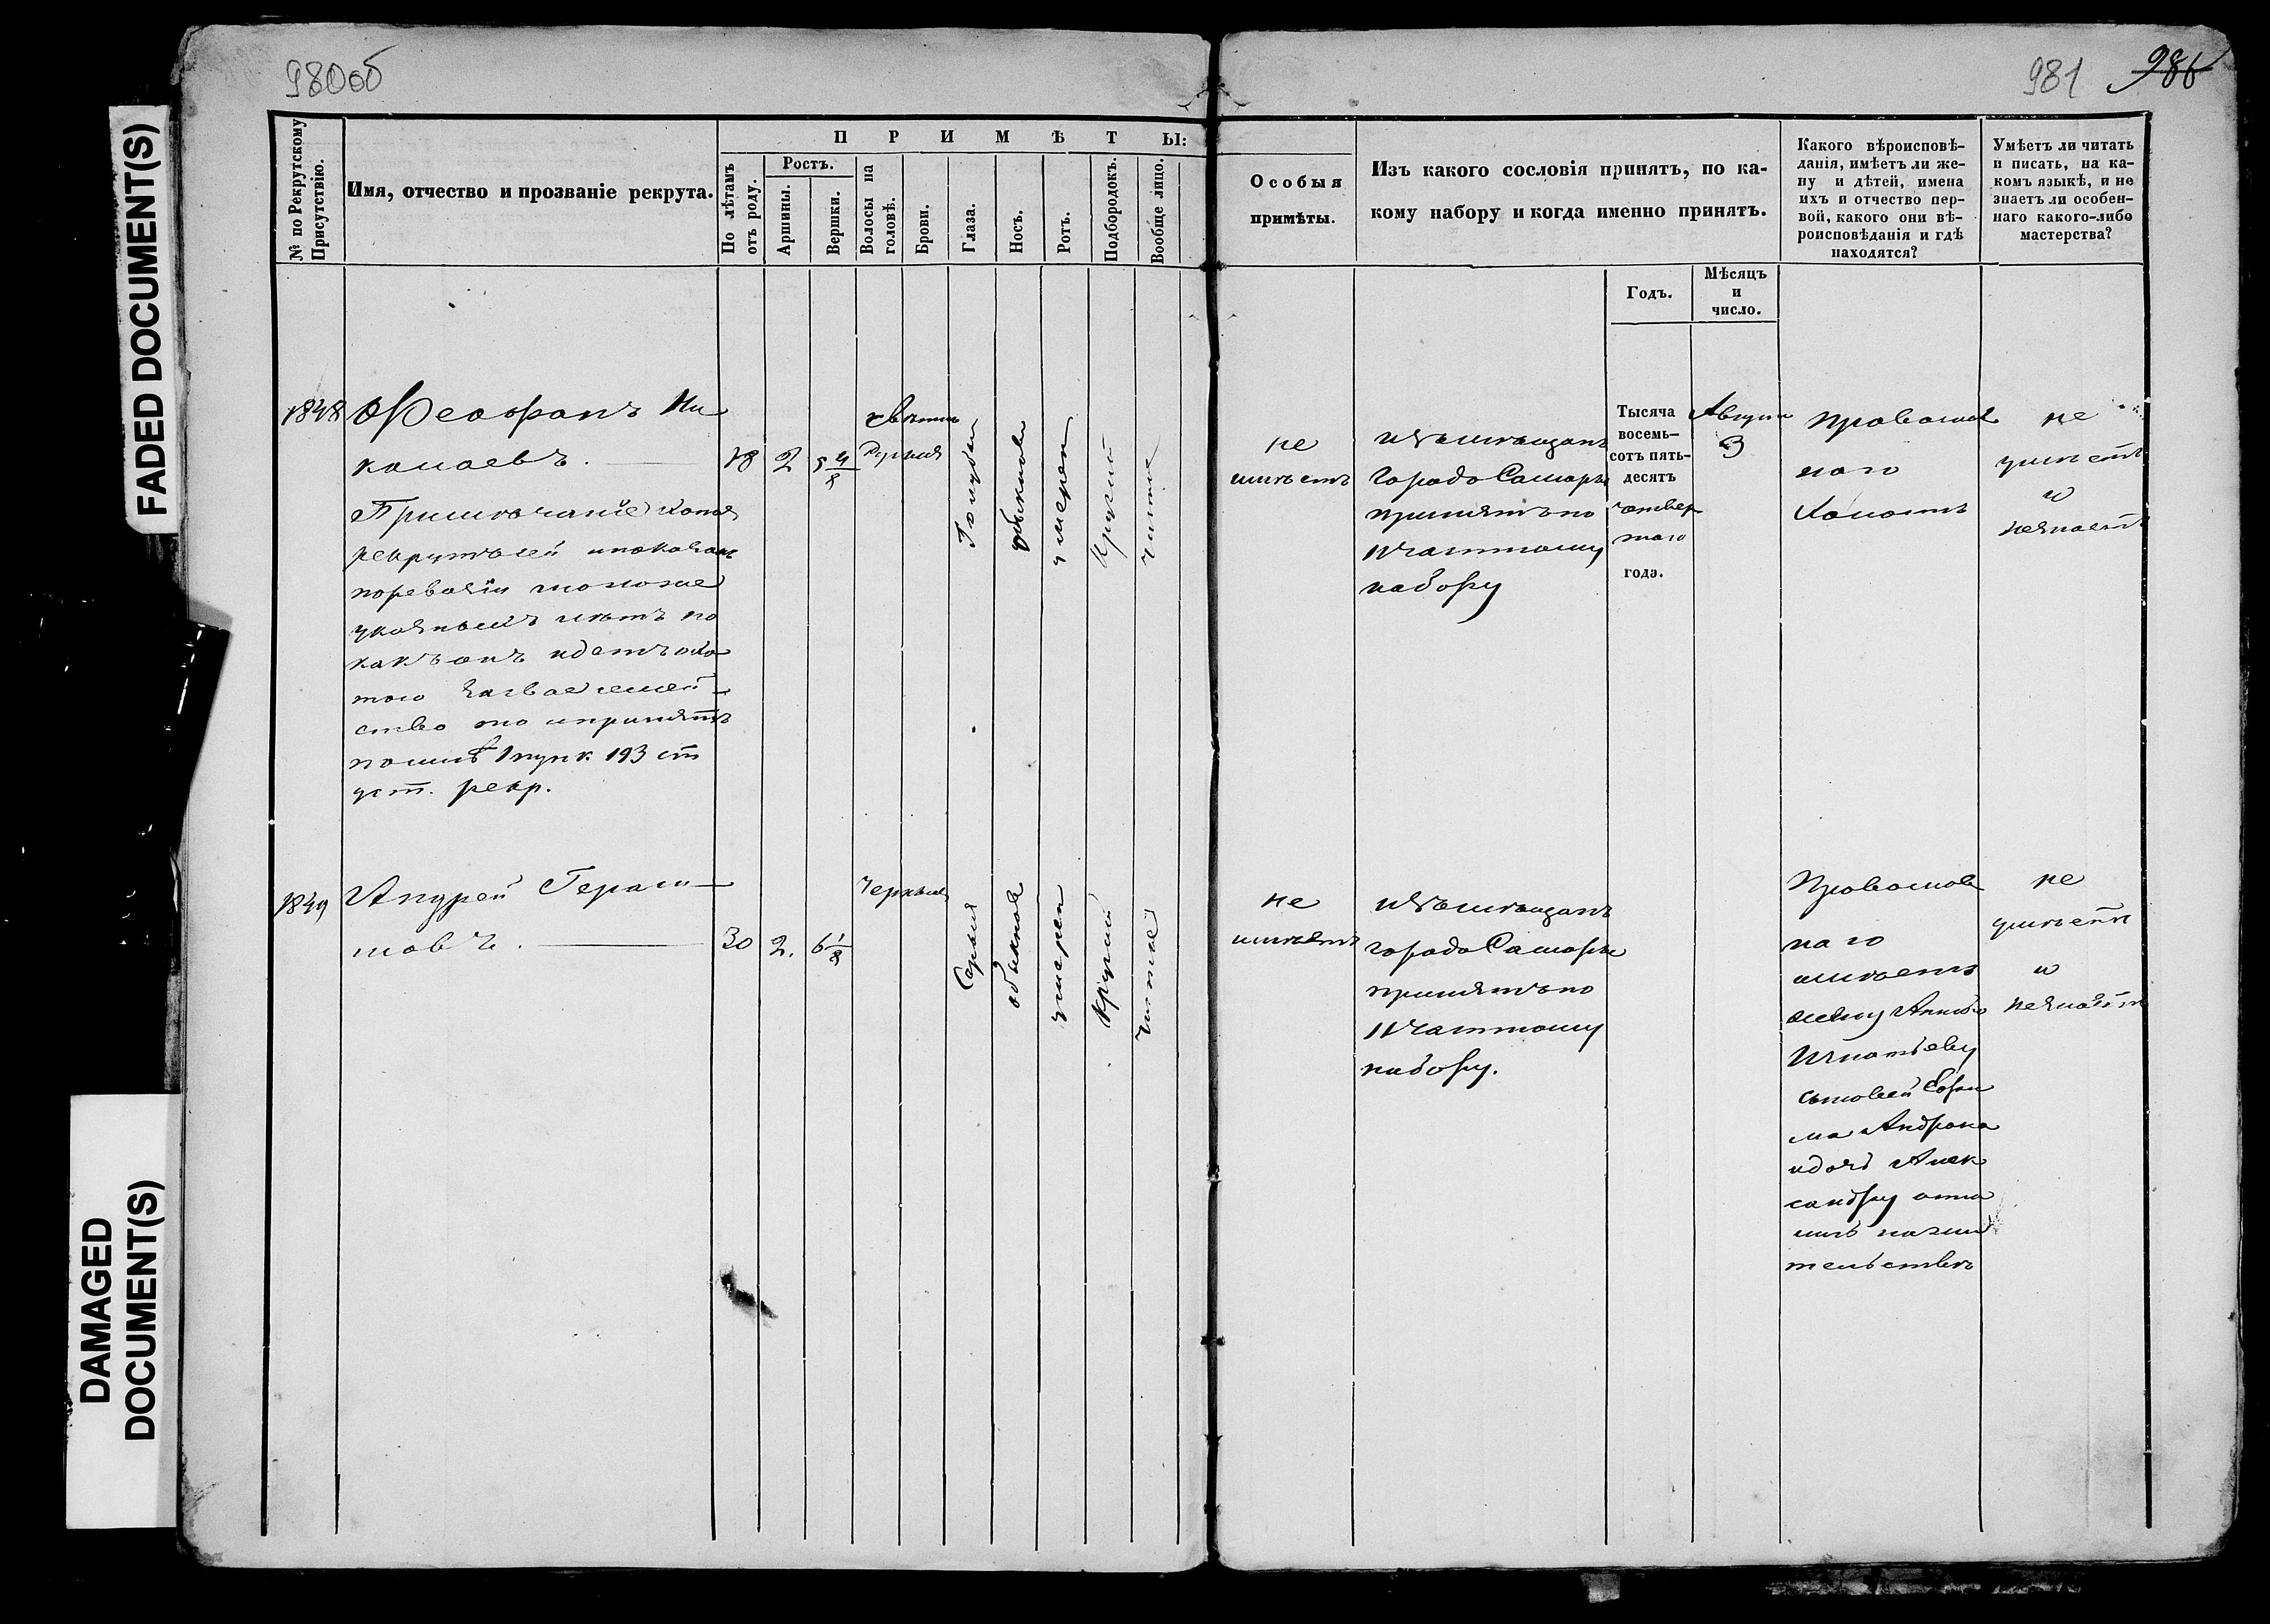 980об
981 986
FADED DOCUMENT(S)
DAMAGED
DOCUMENT(S)
№ по Рекрутскому
Присутствію.
Имя, отчество и прозваніе рекрута.
ПРИМѢТЫ:
По лѣтамъ
отъ роду.
Ростъ.
Аршины.
Вершки.
Волосы на
головѣ.
Брови.
Глаза.
Носъ.
Ротъ.
Подбородокъ.
Вообще лицо.
Особыя
примѣты.
Изъ какого сословія принятъ, по ка-
кому набору и когда именно принятъ.
Годъ.
Мѣсяцъ
и
число.
Какого вѣроисповѣ-
данія, имѣетъ ли же-
ну и дѣтей, имена
ихъ и отчество пер-
вой, какого они вѣ-
роисповѣданія и гдѣ
находятся?
Умѣетъ ли читать
и писать, на ка-
комъ языкѣ, и не
знаетъ ли особен-
наго какого-либо
мастерства?
1848
Феофанъ Ни
колаевъ.
Примѣчаніе
ревизіи
указныхъ лѣтъ но
какъ онъ идетъ
того за свое семей
ство то и принятъ
1 пунк. 193 ст
уст. рекр.
18
2
5 4/8
свѣтло
русыя
Голубыя
обыкнове
умерен
Круглый
чистое
не
имѣетъ
изъ мѣщанъ
города Самары
принятъ по
11 частному
набору
Тысяча
восемь-
сотъ пять-
десятъ
четвер
таго
года.
Август
3
православ
наго
Холостъ
не
умѣетъ
и
незнаетъ
1849
Андрей Гераси
мовъ.
30
2.
6 1/8
Черныя
Серыя
обыкнове
умерен
Круглый
чистое
не
имѣетъ
изъ мѣщанъ
города Самары
принятъ по
11 частному
набору.
Православ
наго
имѣетъ
жену Анну
Игнатьеву
сыновей Ефи
ма Андрона
и дочь Алек
сандру они
на жи
тельствѣ
не
умѣетъ
и
незнаетъ